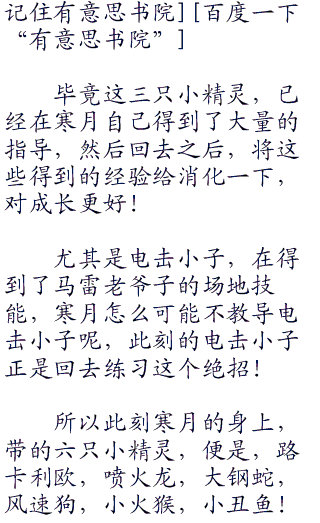 记住有意思书院][百度一下
“有意思书院”]
毕竟这三只小精灵，已
经在寒月自己得到了大量的
指导，然后回去之后，将这
些得到的经验给消化一下，
对成长更好！
尤其是电击小子，在得
到了马雷老爷子的场地技
能，寒月怎么可能不教导电
击小子呢，此刻的电击小子
正是回去练习这个绝招！
所以此刻寒月的身上，
带的六只小精灵，便是，路
卡利欧，喷火龙，大钢蛇，
风速狗，小火猴，小丑鱼！